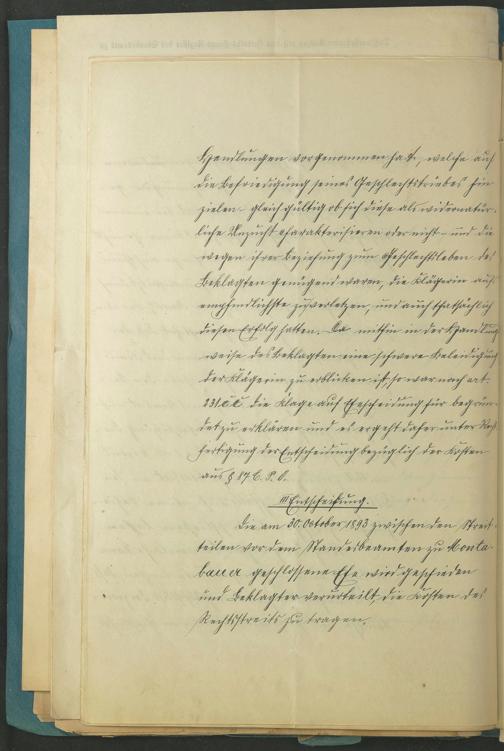 Handlungen vorgenommen hat, welche auf
die Befriedigung seines Geschlechtstriebes hin
zielen – gleichgültig ob sich diese als widernatür-
liche Unzucht charakterisieren oder nicht – und die
wegen ihrer Beziehung zum Geschlechtsleben des
Beklagten genügend waren, die Klägerin auf
empfindlichste zu verletzen, und auch thatsächlich
diesen Erfolg hatten. Da mithin in der Handlungs
weise des Beklagten eine schwere Beleidigung
der Klägerin zu erblicken ist, so war nach art.
231 C.C. die Klage auf Ehescheidung für begrün-
det zu erklären und es ergeht daher unter Recht
fertigung der Entscheidung bezüglich der Kosten
aus § 87 C. P. O.
III Entscheidung.
Die am 30. October 1893 zwischen den Streit-
teilen vor dem Standesbeamten zu Monta-
baur geschlossene Ehe wird geschieden
und Beklagter verurteilt, die Kosten des
Rechtsstreits zu tragen.